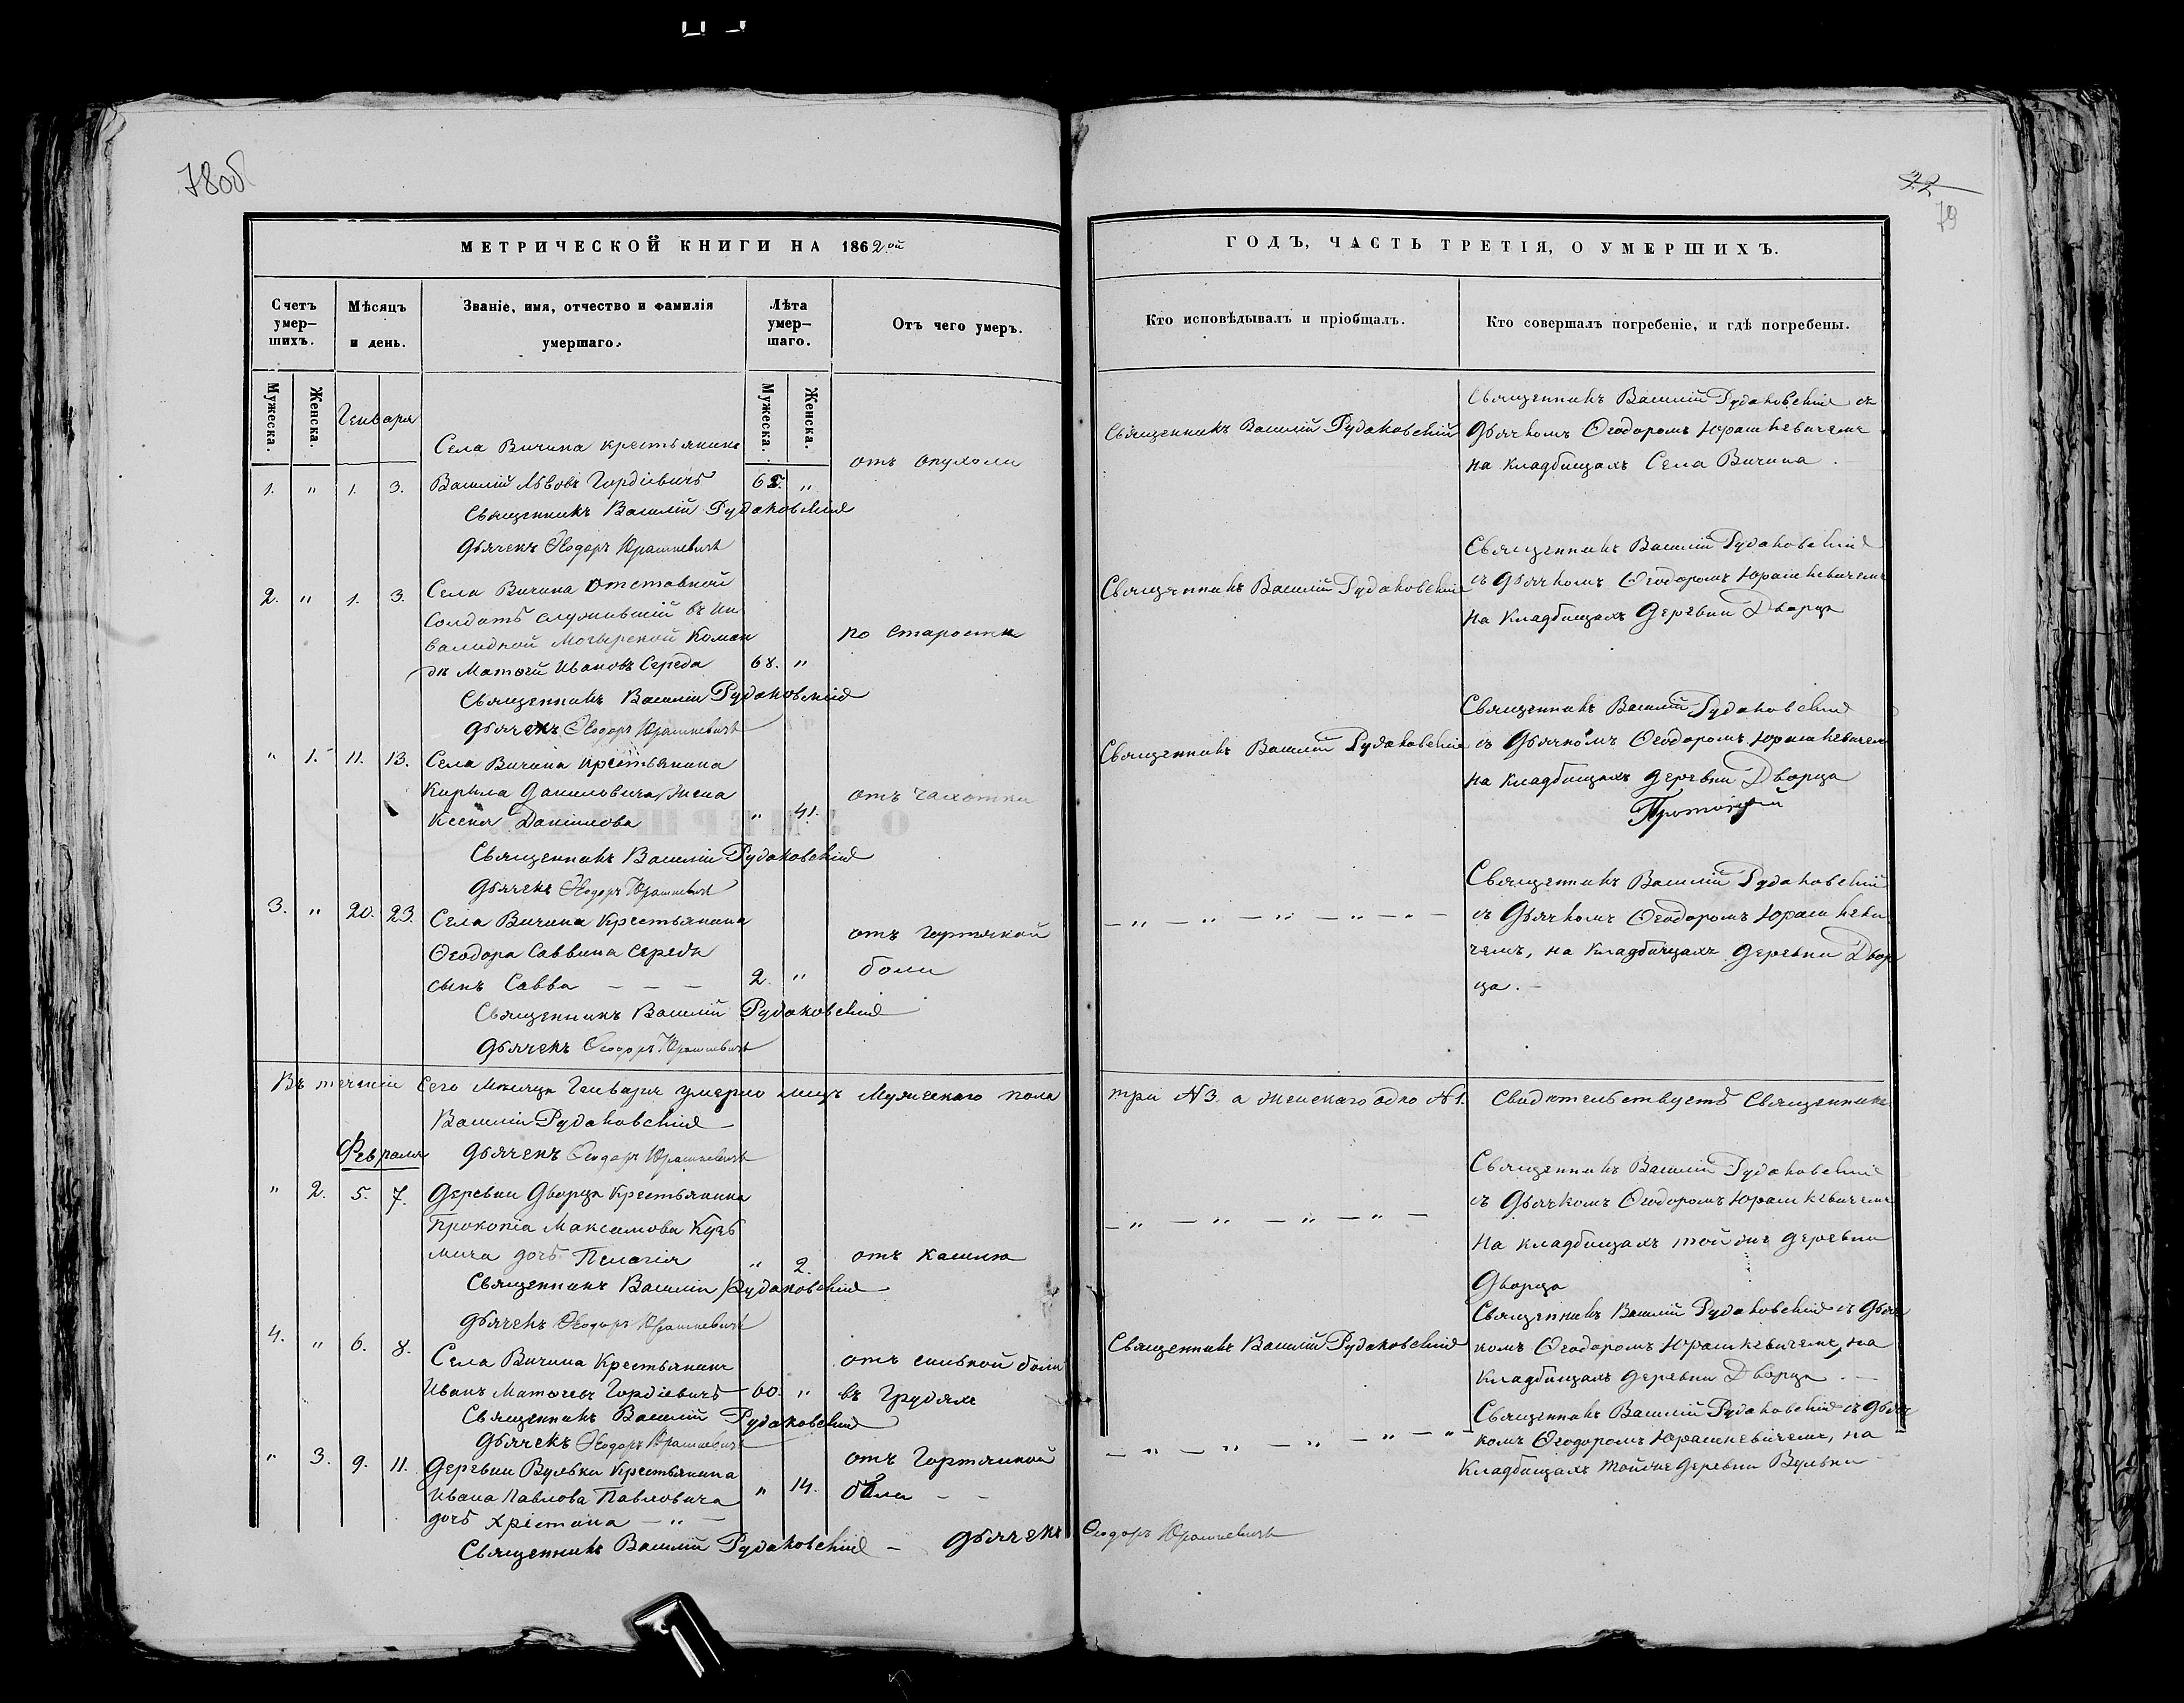 78об
МЕТРИЧЕСКОЙ КНИГИ НА 1862ой
Счетъ умер-шихъ.
Мѣсяцъ и день.
Званіе, имя, отчество и фамилія умершаго.
Лѣта умер-шаго.
Отъ чего умеръ.
Мужеска.
Женска.
Мужеска.
Женска.
Генваря
Села Вичина крестьянинъ
отъ опухоли
1. " 1. 3. Василій Львовъ Гордіевичъ "
Священникъ Василій Рудаковскій
Дьячекъ Ѳеодоръ Юрашкевичъ
2. " 1. 3. Села Вичина отставной
солдатъ служившій въ Ин
валидной Мозырской Коман по старости
дѣ Матѳей Ивановъ Середа 68. "
Священникъ Василій Рудаковскій
Дьячекъ Ѳеодоръ Юрашкевичъ
" 1. 11. 13. Села Вичина крестьянина
Кирила Даниловича жена отъ чахотки
Ксенія Данилова " 41.
Священникъ Василій Рудаковскій
Дьячекъ Ѳеодоръ Юрашкевичъ
3. " 20. 23. Села Вичина Крестьянина
Ѳеодора Саввина Середы отъ гортяной
сынъ Савва — — — 2. " боли
Священникъ Василій Рудаковскій
Дьячекъ Ѳеодоръ Юрашкевичъ
Въ теченіи сего Мѣсяца Генваря умерло лицъ Мужескаго пола
Василій Рудаковскій
Февраля Дьячекъ Ѳеодоръ Юрашкевичъ
" 2. 5. 7. Деревни Дворца Крестьянина
Прокопіа Максимова Кузь
мича дочь Пелагія " 2. отъ кашлю
Священникъ Василій Рудаковскій
Дьячекъ Ѳеодоръ Юрашкевичъ
4. " 6. 8. Села Вичина Крестьянинъ отъ сильной боли
Иванъ Матѳеевъ Гордіевичъ 60. " въ грудяхъ
Священникъ Василій Рудаковскій
Дьячекъ Ѳеодоръ Юрашкевичъ
" 3. 9. 11. Деревни Вульки Крестьянина отъ Гортяной
Ивана Павлова Павловича " 14. боли — —
дочь Хрістина — " —
Священникъ Василій Рудаковскій — Дьячекъ Ѳеодоръ Юрашкевичъ
32
79
ГОДЪ, ЧАСТЬ ТРЕТІЯ, О УМЕРШИХЪ.
Кто исповѣдывалъ и пріобщалъ.
Кто совершалъ погребеніе, и гдѣ погребены.
Священникъ Василій Рудаковскій съ
Священникъ Василій Рудаковскій Дьячкомъ Ѳеодоромъ Юрашкевичемъ
на кладбищахъ Села Вичина.
Священникъ Василій Рудаковскій
Священникъ Василій Рудаковскій съ Дьячкомъ Ѳеодоромъ Юрашкевичемъ
на Кладбищахъ Деревни Дворца
Священникъ Василій Рудаковскій
Священникъ Василій Рудаковскій съ Дьячкомъ Ѳеодоромъ Юрашкевичемъ
на Кладбищахъ деревни Дворца
Священникъ Василій Рудаковскій
— " — " — " — " — " — съ Дьячкомъ Ѳеодоромъ Юрашкеви
чемъ, на Кладбищахъ деревни Двор
ца. —
три N 3. а женскаго одно N 1. Свидѣтельствуетъ Священникъ
Священникъ Василій Рудаковскій
съ Дьячкомъ Ѳеодоромъ Юрашкевичемъ
— " — " — " — " —
на кладбищахъ той же деревни
Дворца
Священникъ Василій Рудаковскій съ Дьяч
Священникъ Василій Рудаковскій комъ Ѳеодоромъ Юрашкевичемъ, на
Кладбищахъ деревни Дворца. —
Священникъ Василій Рудаковскій съ Дьяч
— " — " — " — " — " — комъ Ѳеодоромъ Юрашкевичемъ, на
Кладбищахъ той же деревни Вульки